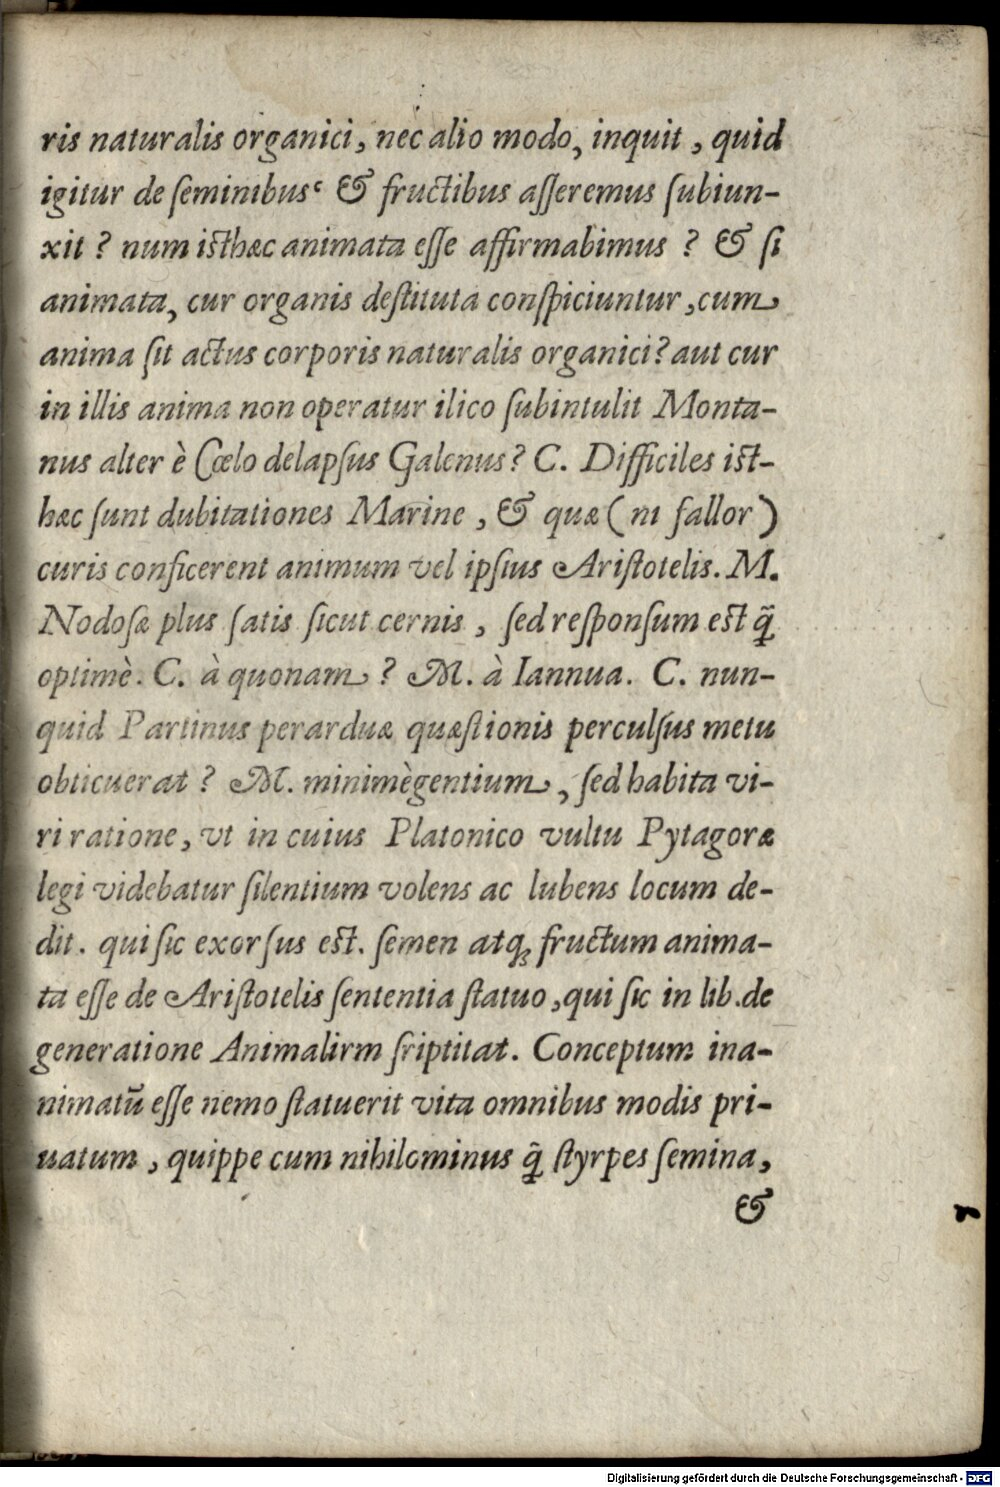 ris naturalis organici, nec alio modo, inquit, quid
igitur de ſeminibusᶜ & fructibus aſſeremus ſubiun-
xit? num isthæc animata eſſe affirmabimus? & ſi
animata, cur organis deſtituta conſpiciuntur, cum
anima ſit actus corporis naturalis organici? aut cur
in illis anima non operatur ilico ſubintulit Monta-
nus alter è Cœlo delapſus Galenus? C. Difficiles ist-
hæc ſunt dubitationes Marine, & quæ (ni fallor)
curis conficerent animum vel ipſius Ariſtotelis. M.
Nodoſæ plus ſatis ſicut cernis, ſed reſponſum est q̃
optimè. C. à quonam? M. à Iannua. C. nun-
quid Partinus perarduæ quæſtionis perculſus metu
obticuerat? M. minimègentium, ſed habita vi-
ri ratione, vt in cuius Platonico vultu Pytagoræ
legi videbatur ſilentium volens ac lubens locum de-
dit. qui ſic exorſus est. ſemen atq; fructum anima-
ta eſſe de Ariſtotelis ſententia ſtatuo, qui ſic in lib. de
generatione Animalirm ſriptitat. Conceptum ina-
nimatũ eſſe nemo ſtatuerit vita omnibus modis pri-
uatum, quippe cum nihilominus q̃ ſtyrpes ſemina,
&
Digitalisierung gefördert durch die Deutsche Forschungsgemeinschaft - DFG